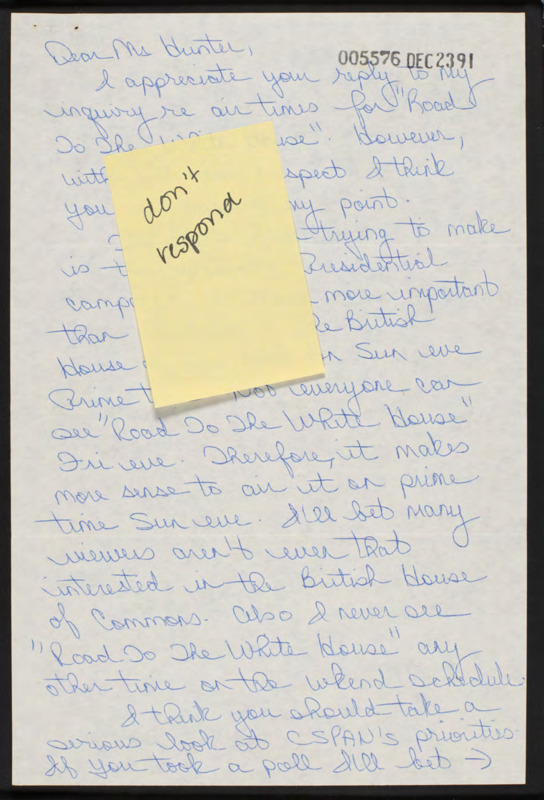 005576 DEC 23 91
Dear Ms Hunter,
I appreciate your reply to my
inquiry re air times for "Road
To The White House". However,
with spect I think
you my point.
trying to make
is t Presidential
camp more important
than British
House n Sun eve
Prime t Not everyone can
see "Road To The White House"
Fri eve. Therefore, it makes
more sense to air it on prime
time Sun eve. I'll bet many
viewers aren't even that
interested in the British House
of Commons. Also I never see
"Road To The White House" any
other time on the wkend schedule.
I think you should take a
serious look at CSPAN's priorities.
If you took a poll I'll bet →
don't
respond